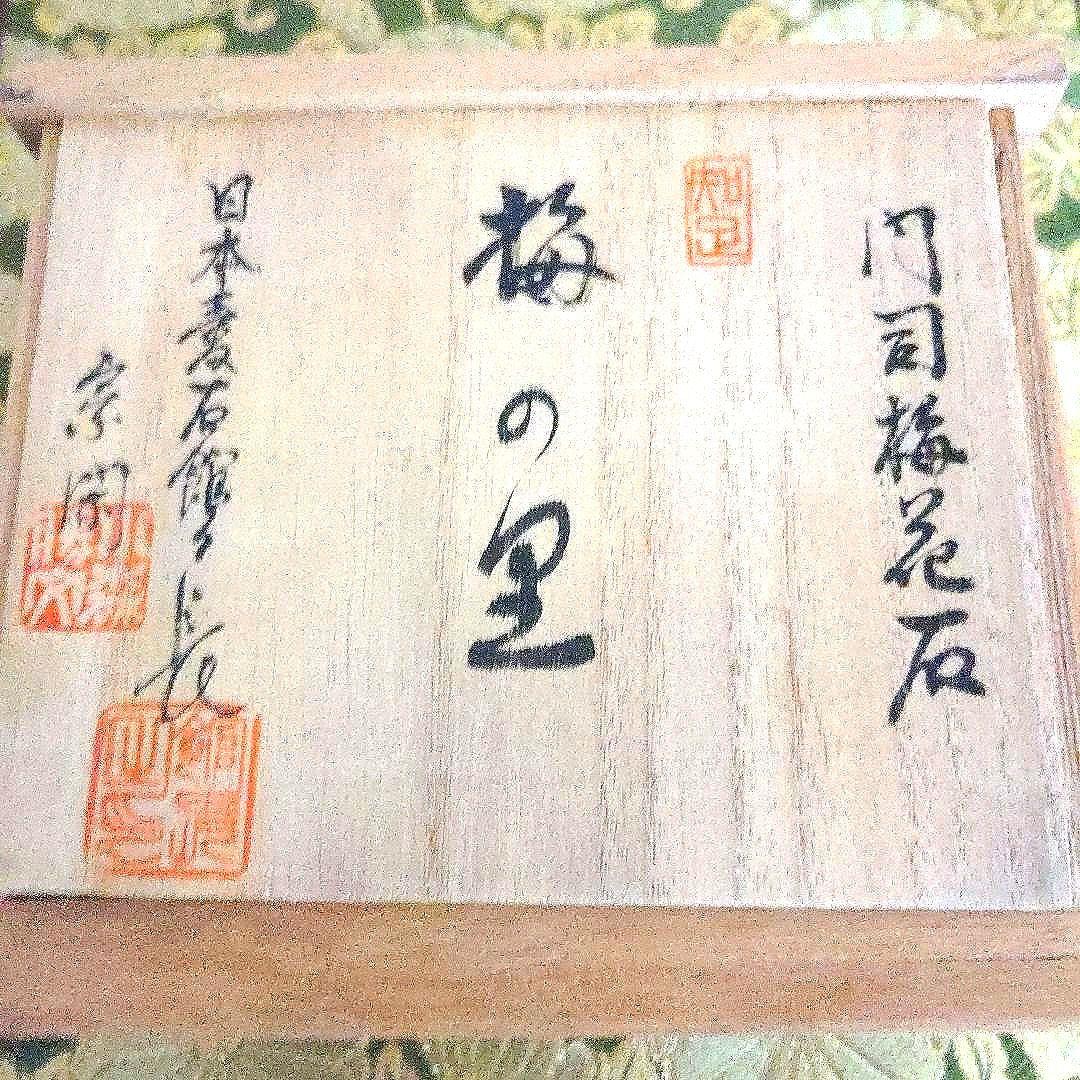 門司梅花石
梅の里
日本愛石館々長
宗関